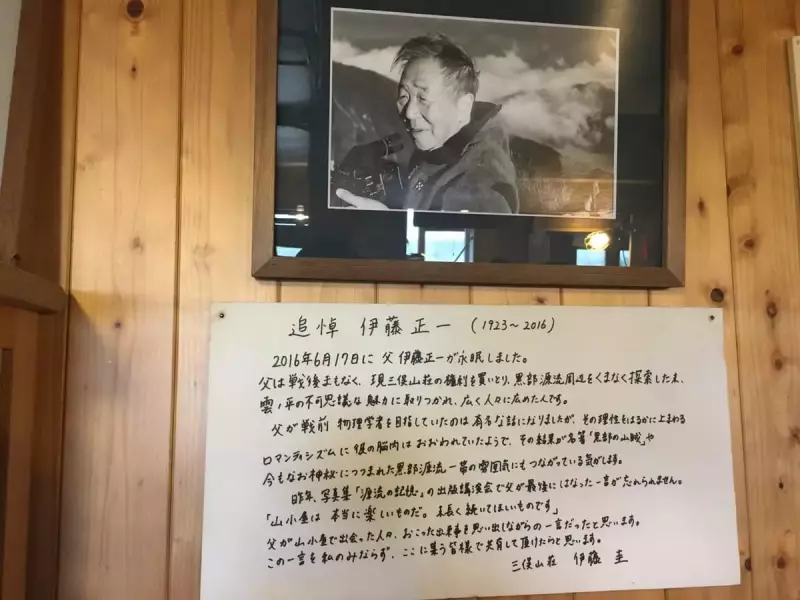 追悼 伊藤正一 (1923~2016)
2016年6月17日に 父 伊藤正一が永眠しました。
父は戦後まもなく、現三俣山荘の権利を買いとり、黒部源流周辺をくまなく探索したまま、
雲ノ平の不可思議な魅力に取りつかれ、広く人々に広めた人です。
父が戦前 物理学者を目指していたのは有名な話になりましたが、その理性をはるかに上まわる
ロマンティシズムに彼の脳内はおおわれていたようで、その結果が名著「黒部の山賊」や
今もなお神秘につつまれた黒部源流一帯の雰囲気にもつながっている気がします。
昨年、写真集「源流の記憶」の出版講演会で父が最後にはなった一言が忘れられません。
「山小屋は 本当に楽しいものだ。末長く続いてほしいものです」
父が山小屋で出会った人々、おこった出来事を思い出しながらの一言だったと思います。
この一言を私のみならず、ここに集う皆様で共有して頂けたらと思います。
三俣山荘 伊藤 圭